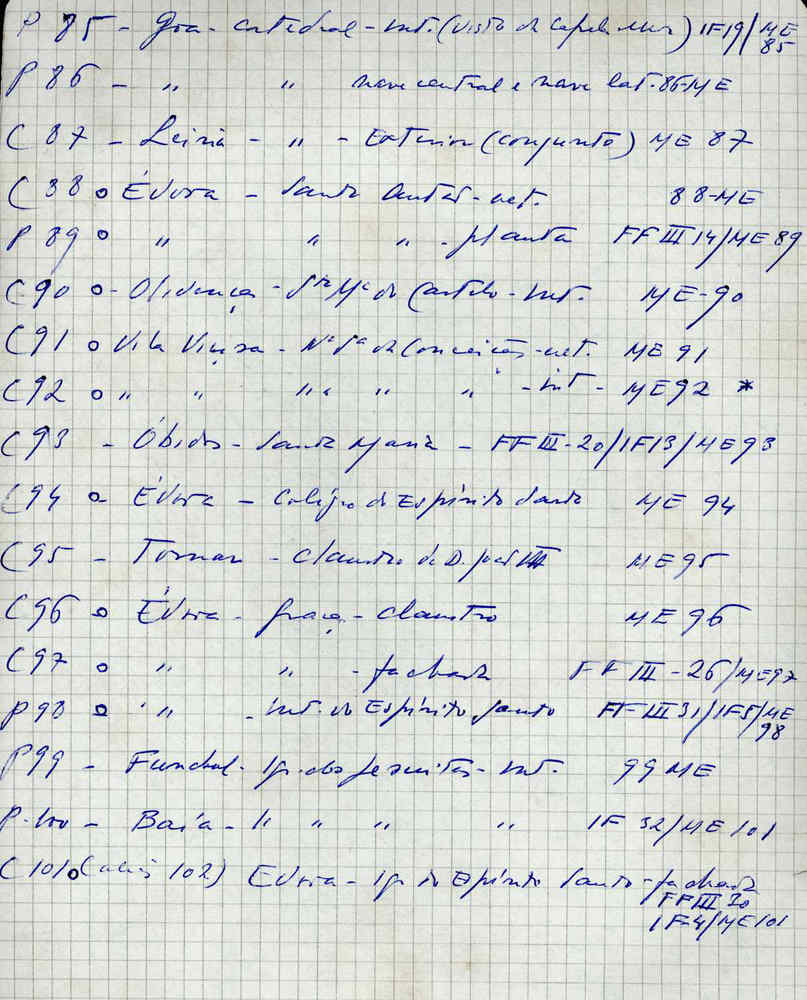 P 85 - Goa - catedral - int. (visto da Capela mor) IF19/ME 85
P 86 - " " nave central e nave lat. 86-ME
C 87 - Leiria - " - Exterior (conjunto) ME 87
C 88 o Évora - Santo Antão - ext. 88-ME
P 89 o " " " - planta FF III 14/ME 89
C 90 o - Olivença - Stª Mª do Castelo - int. ME-90
C 91 o Vila Viçosa - Nª Sª da Conceição - ext. ME 91
C 92 o " " " " " " - int - ME 92 *
C 93 - Óbidos - Santa Maria - FF III - 20/IF13/ME 93
C 94 o Évora - Colégio do Espírito Santo ME 94
C 95 - Tomar - Claustro de D. João III ME 95
C 96 o Évora - Graça - claustro ME 96
C 97 o " " - fachada FF III - 26/ME 97
P 98 o " - int. do Espírito Santo FF III 31/IF5/ME 98
P 99 - Funchal - Ig. dos Jesuítas - int. 99 ME
P. 100 - Baía - " " " " IF 32/ME 101
C 101 o (aliás 102) Évora - Ig. do Espírito Santo - fachada
FF III 30
IF-4/ME 101